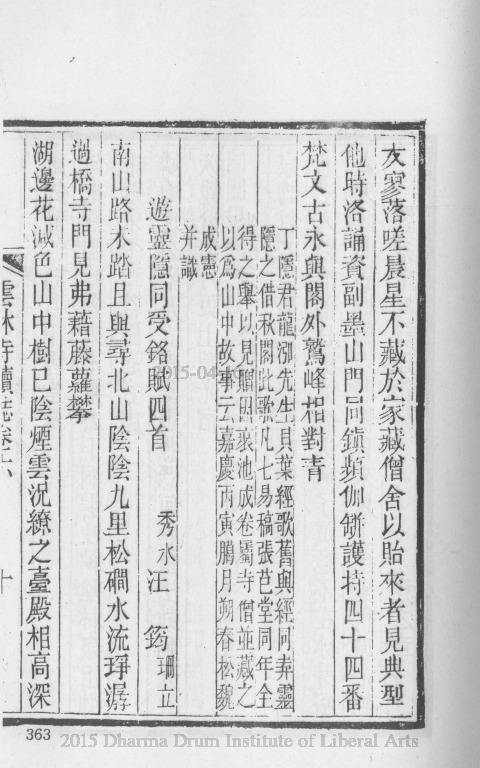 友寥落嗟晨星不藏於家藏僧舍以貽來者見典型
他時洛誦資副墨山門同鎮頻伽缾護持四十四番
梵文古永與閣外鷲峰相對青
丁隱君龍泓先生貝葉經歌舊與經同弆靈
隱之借秋閣此歌凡七易稿張芑堂同年全
得之舉以見贈因裝池成卷屬寺僧並藏之
以為山中故事云嘉慶丙寅臈月朔春松魏
成憲
并識
遊靈隱同受銘賦四首 秀水汪筠珊立
南山路未踏且與尋北山陰陰九里松磵水流琤潺
過橋寺門見弗藉藤蘿攀
湖邊花減色山中樹已陰煙雲況繚之臺殿相高深
雲林寺續志卷六 十
363
2015-04-
2015 Dharma Drum Institute of Liberal Arts